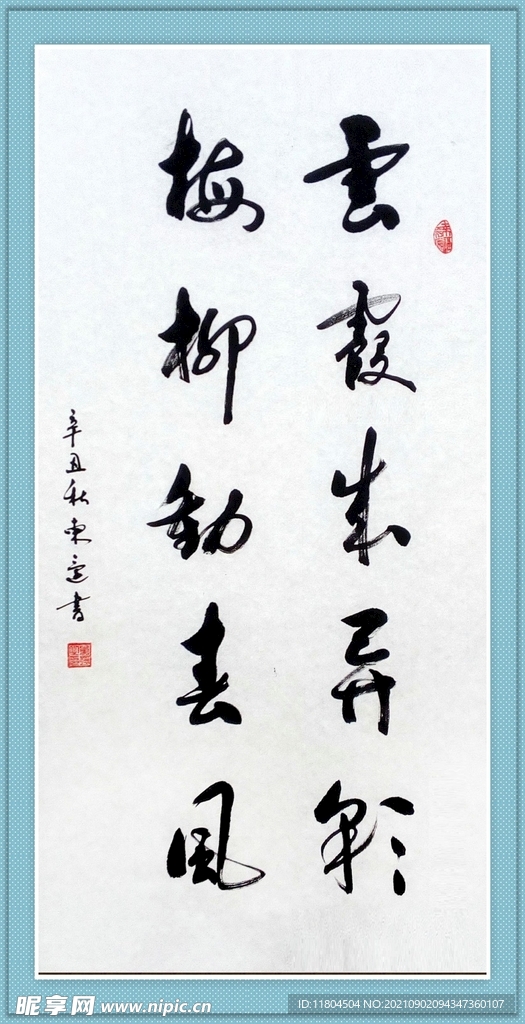 雲霞成异彩
梅柳動春風
辛丑秋東逸書
昵享网 www.nipic.cn
ID:11804504 NO:20210902094347360107